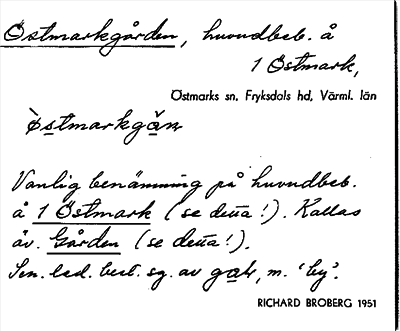 Östmarkgården, huvudbeb. å
1 Östmark,
Östmarks sn. Fryksdals hd, Värml. län
`østmarkgạ̄n
Vanlig benämning på huvudbeb.
å 1 Östmark (se detta!). Kallas
äv. Gården (se detta!).
Sen. led. best. sg. av
m. 'by'.
RICHARD BROBERG 1951